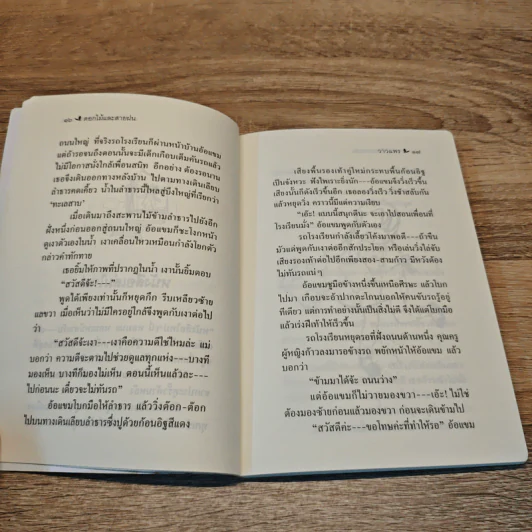 ๑๖ ดอกไม้และสายฝน
ถนนใหญ่ ที่จริงรถโรงเรียนก็ผ่านหน้าบ้านอ้อแขม
แต่ถ้ารอจนถึงตอนนั้นจะมีเด็กเกือบเต็มคันรถแล้ว
ไม่มีโอกาสนั่งใกล้เพื่อนสนิท อีกอย่าง ต้องรอนาน
เธอจึงเดินออกทางหลังบ้าน ไปตามทางเดินเลียบ
ลำธารคดเคี้ยว น้ำในลำธารนี้ไหลสู่บึงใหญ่ที่เรียกว่า
"ทะเลสาบ"
เมื่อเดินมาถึงสะพานไม้ข้ามลำธารไปยังอีก
ฝั่งหนึ่งก่อนออกสู่ถนนใหญ่ อ้อแขมก็ชะโงกหน้า
ดูเงาตัวเองในน้ำ เงาเคลื่อนไหวเหมือนกำลังโยกตัว
กล่าวคำทักทาย
เธอยิ้มให้ภาพที่ปรากฏในน้ำ เงานั้นยิ้มตอบ
"สวัสดีจ้ะ!---"
พูดได้เพียงเท่านั้นก็หยุดกึก รีบเหลียวซ้าย
แลขวา เมื่อเห็นว่าไม่มีใครอยู่ใกล้จึงพูดกับเงาต่อไป
ว่า
"สวัสดีจ้ะเงา---เงาคือความดีใช่ไหมล่ะ แม่
บอกว่า ความดีจะตามไปช่วยดูแลทุกแห่ง---บางที
มองเห็น บางทีก็มองไม่เห็น ตอนนี้เห็นแล้วละ---
ไปก่อนนะ เดี๋ยวจะไม่ทันรถ"
อ้อแขมโบกมือให้ลำธาร แล้ววิ่งต๊อก-ต๊อก
ไปบนทางเดินเลียบลำธารซึ่งปูด้วยก้อนอิฐสีแดง
ชาวแพร ๑๗
เสียงพื้นรองเท้าคู่ใหม่กระทบพื้นก้อนอิฐ
เป็นจังหวะ ฟังไพเราะยิ่งนัก---อ้อแขมจึงวิ่งเร็วขึ้น
เสียงนั้นก็ดังเร็วขึ้นอีก เธอลองวิ่งเร็ว วิ่งช้าสลับกัน
แล้วหยุดวิ่ง คราวนี้มีแต่ความเงียบ
"เอ๊ะ! แบบนี้สนุกดีนะ จะเอาไปสอนเพื่อนที่
โรงเรียนมั่ง" อ้อแขมพูดกับตัวเอง
รถโรงเรียนกำลังเลี้ยวโค้งมาพอดี---ถ้าขืน
มัวแต่พูดกับเงาต่ออีกสักประโยค หรือเล่นวิ่งไล่จับ
เสียงรองเท้าต่อไปอีกเพียงสอง-สามก้าว มีหวังต้อง
ไม่ทันรถแน่ๆ
อ้อแขมชูมือข้างหนึ่งขึ้นเหนือศีรษะ แล้วโบก
ไปมา เกือบจะอ้าปากตะโกนบอกให้คนขับรถรู้อยู่
ทีเดียว แต่การทำอย่างนั้นเป็นสิ่งไม่ดี จึงได้แต่โบกมือ
แล้วเร่งฝีเท้าให้เร็วขึ้น
รถโรงเรียนหยุดรอที่ฝั่งถนนด้านหนึ่ง คุณครู
ผู้หญิงก้าวลงมารอข้างรถ พยักหน้าให้อ้อแขม แล้ว
บอกว่า
"ข้ามมาได้จ้ะ ถนนว่าง"
แต่อ้อแขมก็ไม่วายมองขวา---เอ๊ะ! ไม่ใช่
ต้องมองซ้ายก่อนแล้วมองขวา ก่อนจะเดินข้ามไป
"สวัสดีค่ะ---ขอโทษค่ะที่ทำให้รอ" อ้อแขม